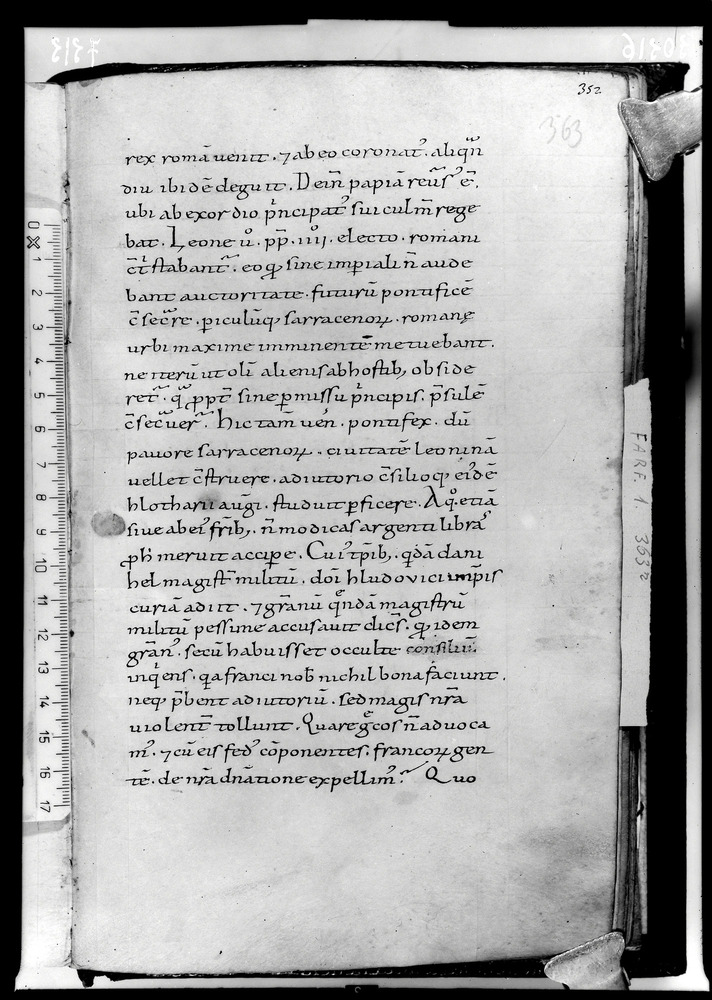 352
363
rex romā uenit . ⁊ ab eo coronat᷒ . aliqn̄
diu ibidē deguit . Dein̄ papiā reūs᷒ ē .
ubi ab exordio p̄ncipat᷒ sui culm̄ rege
bat . Leone ū . pp̄ . iiij . electo . romani
c̄t̄stabant᷒ . eo qđ sine imperiali n̄ aude
bant auctoritate . futurū pontificē
c̄secrare . periculūq; sarracenoꝝ . romanę
urbi maxime imminentē metuebant .
ne iterū ut olī alienis ab hostib; obside
ret᷒ . q̄ ꝓpt̄ sine ꝑmissu p̄ncipis . p̄sulē
c̄secuer̄ . hic tam̄ uen̄ . pontifex . dū
pauore sarracenoꝝ . ciuitatē leoninā
uellet c̄struere . adiutorio c̄silioq; eidē
hlotharii aug̅i . studuit ꝑficere . A qͦ . etiā
siue ab ei᷒ frīb; . n̄ modicas argenti libras
ꝓh̄ meruit accipe . Cui᷒ tp̄ib; . qđā dani
hel magist̄ militū . doī hludouici imp̄is
curiā adiit . ⁊ grānū qͤndā magistrū
militū pessime accusauit dic̄s . qđ idem
grān᷒ . secū habuisset occulte consiliū .
inq̇ens . q̇a franci nob̄ nichil bona faciunt .
neq; p̄bent adiutoriū . sed magis nr̄a
uiolent̄ tollunt . Quare gͤcos n̄ aduoca
m᷒ . ⁊ cū eis fed᷒ cōponentes . francoꝝ gen
tē . de nr̄a dn̄atione expellim᷒ . Quo
FARF. 1.
363r